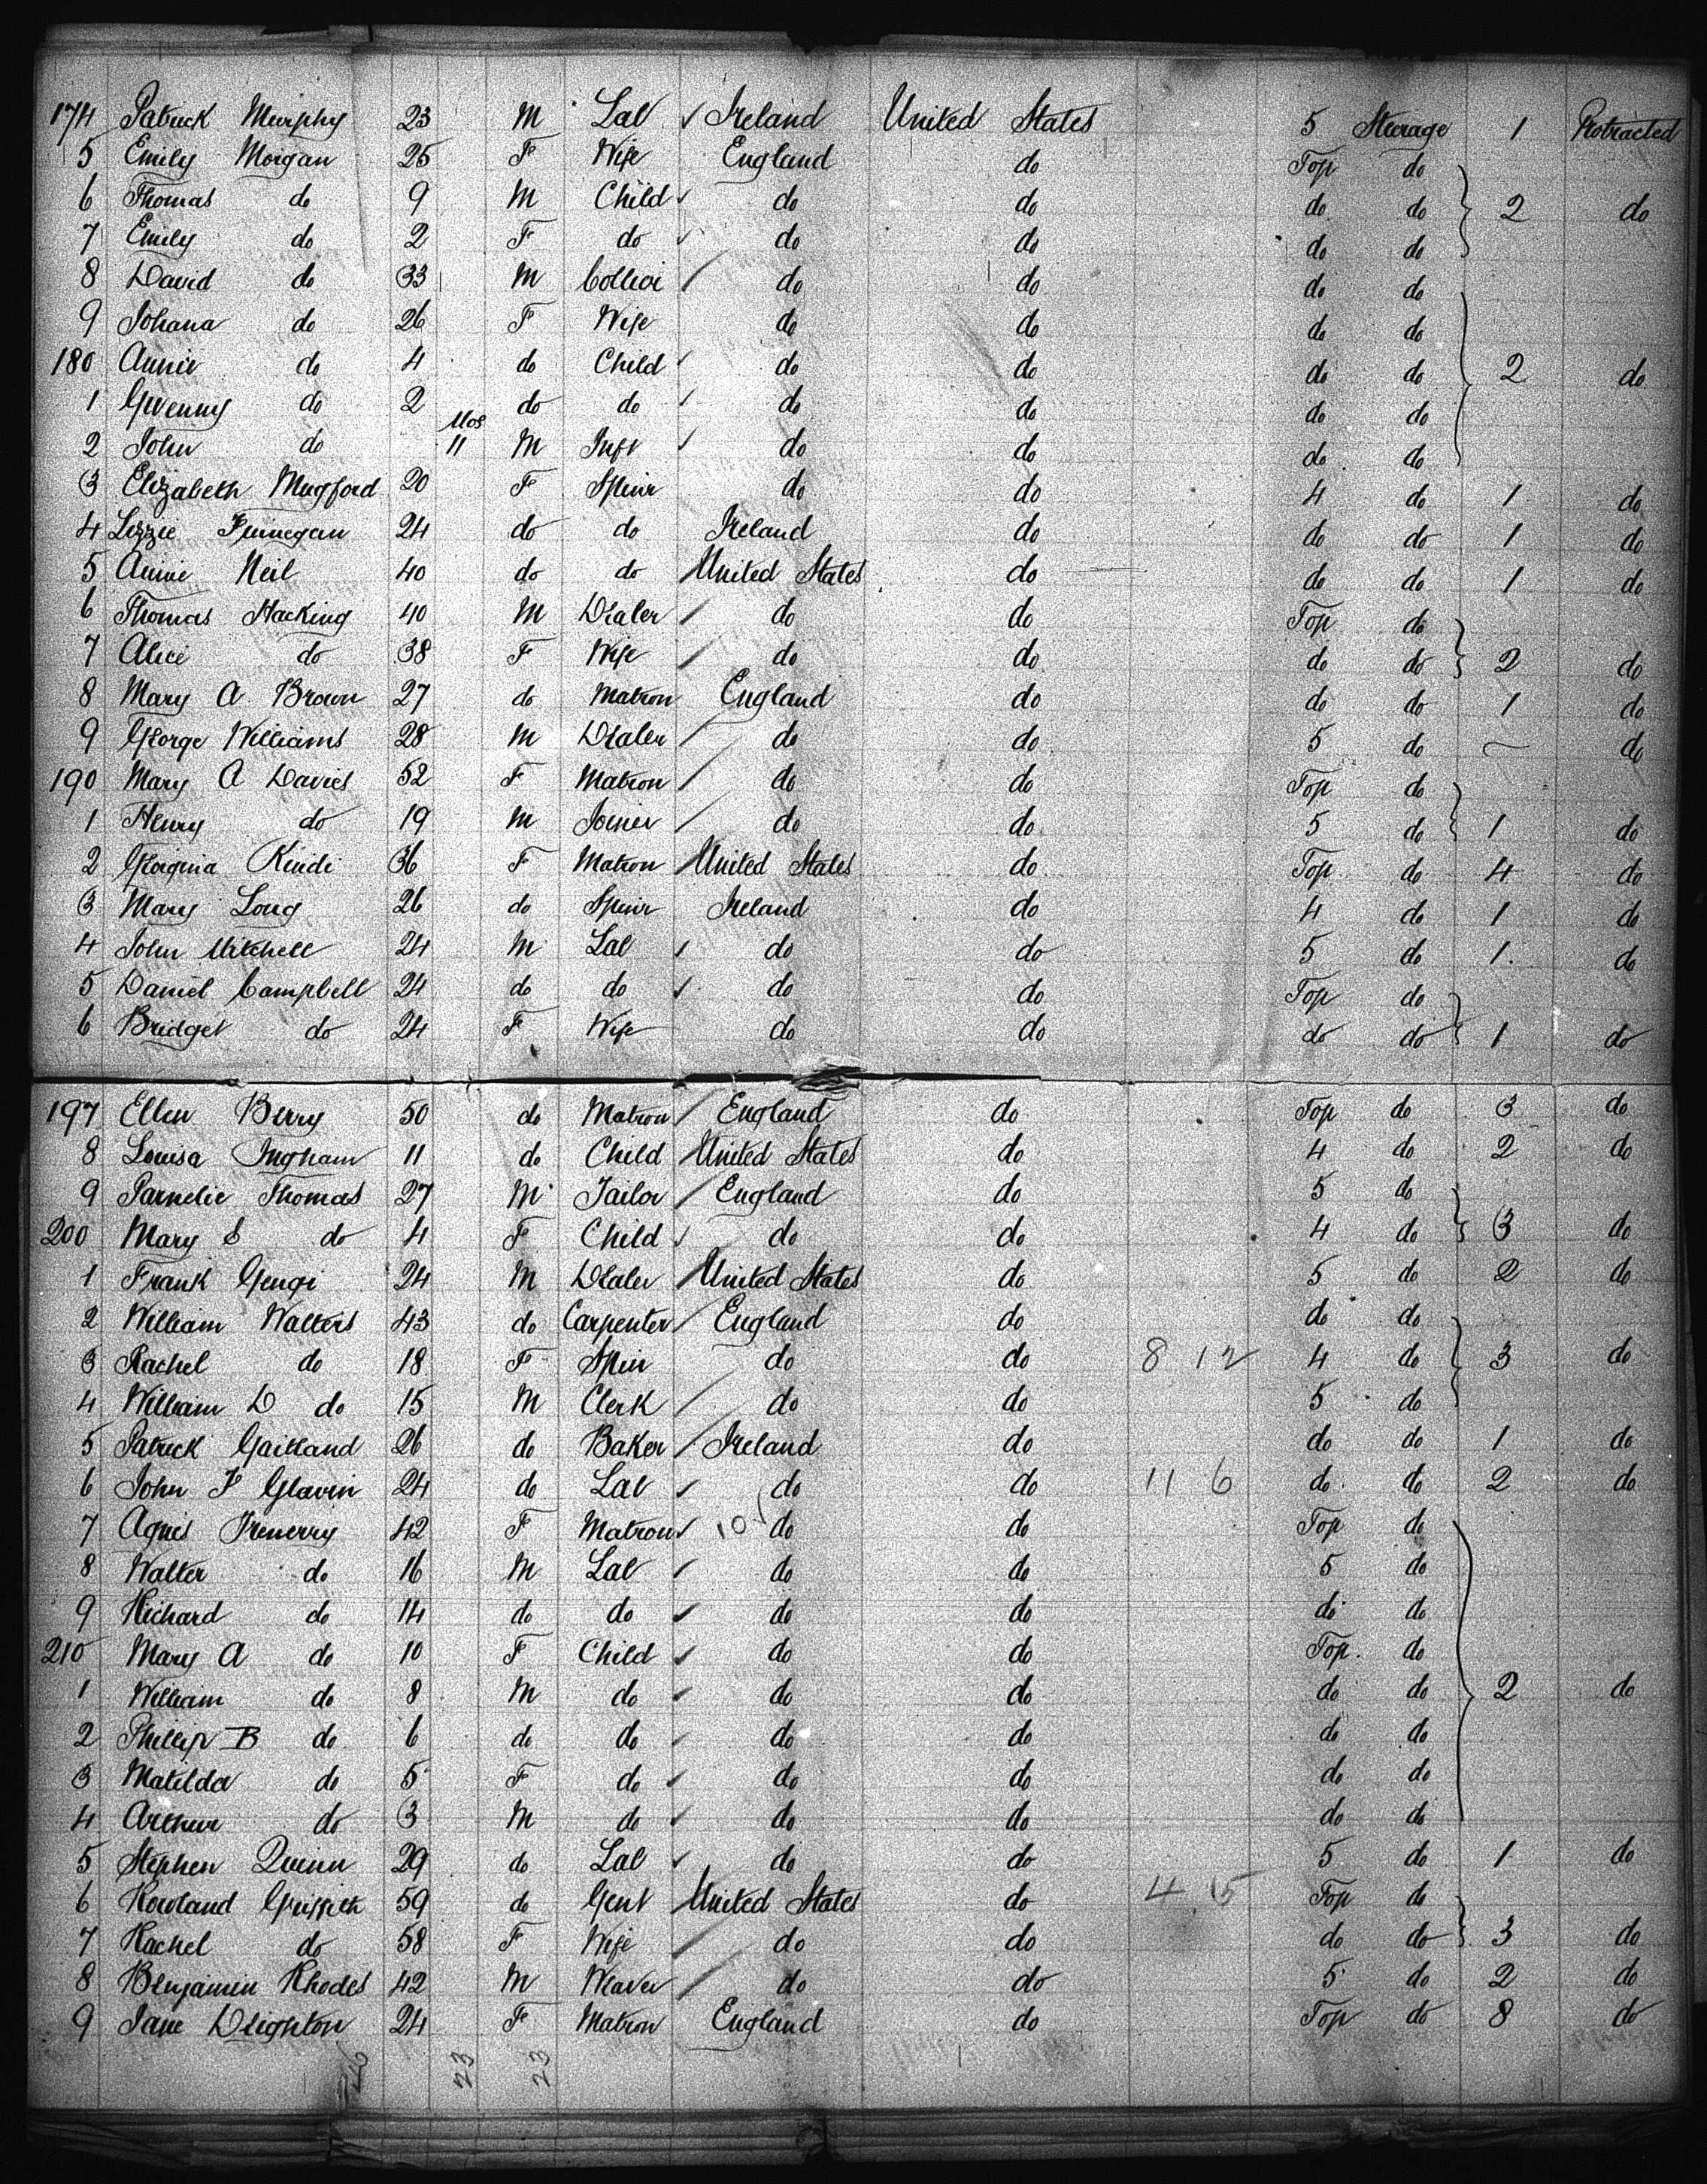 174 Patrick Murphy 23 M Lab Ireland United States 5 Steerage 1 Protracted
5 Emily Morgan 25 F Wife England do Top do
6 Thomas do 9 M Child do do do do 2 do
7 Emily do 2 F do do do do do
8 David do 33 M Collier do do do do
9 Johana do 26 F Wife do do do do
180 Annie do 4 do Child do do do do 2 do
1 Gwenny do 2 do do do do do do
2 John do Mos 11 M Inft do do do do
3 Elizabeth Mugford 20 F Spinr do do 4 do 1 do
4 Lizzie Finnegan 24 do do Ireland do do do 1 do
5 Annie Neil 40 do do United States do do do 1 do
6 Thomas Hacking 40 M Dealer do do Top do
7 Alice do 38 F Wife do do do do 2 do
8 Mary A Brown 27 do Matron England do do do 1 do
9 George Williams 28 M Dealer do do 5 do — do
190 Mary A Davies 52 F Matron do do Top do
1 Henry do 19 M Joiner do do 5 do 1 do
2 Georgina Kindi 36 F Matron United States do Top do 4 do
3 Mary Long 26 do Spinr Ireland do 4 do 1 do
4 John Mitchell 24 M Lab do do 5 do 1 do
5 Daniel Campbell 24 do do do do Top do
6 Bridget do 24 F Wife do do do do 1 do
197 Ellen Berry 50 do Matron England do Top do 3 do
8 Louisa Ingham 11 do Child United States do 4 do 2 do
9 Parnelie Thomas 27 M Tailor England do 5 do
200 Mary S do 4 F Child do do 4 do 3 do
1 Frank Gengi 24 M Dealer United States do 5 do 2 do
2 William Walters 43 do Carpenter England do do do
3 Rachel do 18 F Spin do do 8 12 4 do 3 do
4 William D do 15 M Clerk do do 5 do
5 Patrick Gartland 26 do Baker Ireland do do do 1 do
6 John F Glavin 24 do Lab do do 11 6 do do 2 do
7 Agnes Trenerry 42 F Matron 10 do do Top do
8 Walter do 16 M Lab do do 5 do
9 Richard do 14 do do do do do do
210 Mary A do 10 F Child do do Top do
1 William do 8 M do do do do do 2 do
2 Phillip B do 6 do do do do do do
3 Matilda do 5 F do do do do do
4 Arthur do 3 M do do do do do
5 Stephen Quinn 29 do Lab do do 5 do 1 do
6 Rowland Griffith 59 do Gent United States do 4 15 Top do
7 Rachel do 58 F Wife do do do do 3 do
8 Benjamin Rhodes 42 M Weaver do do 5 do 2 do
9 Jane Deighton 24 F Matron England do Top do 8 do
46 23 23